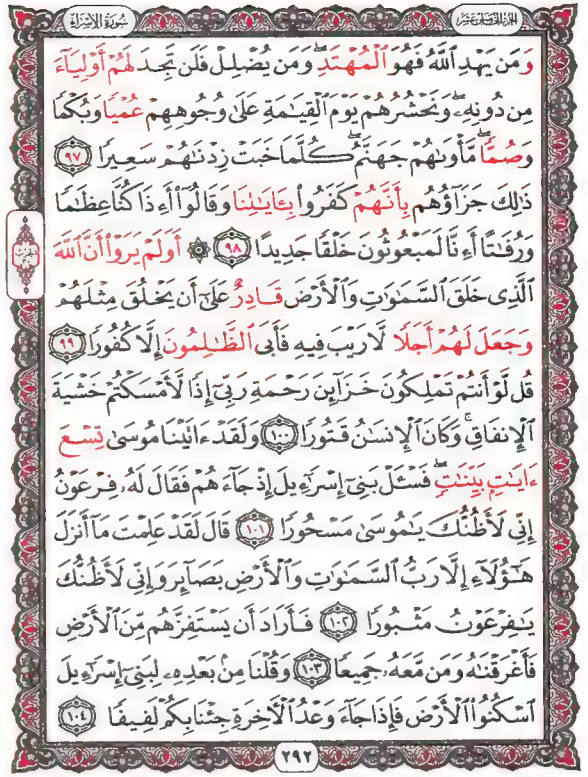 الجزء الخامس عشر
سورة الإسراء
وَمَن يَهْدِ ٱللَّهُ فَهُوَ ٱلْمُهْتَدِۖ وَمَن يُضْلِلْ فَلَن تَجِدَ لَهُمْ أَوْلِيَآءَ
مِن دُونِهِۦۖ وَنَحْشُرُهُمْ يَوْمَ ٱلْقِيَٰمَةِ عَلَىٰ وُجُوهِهِمْ عُمْيًا وَبُكْمًا
وَصُمًّاۖ مَّأْوَىٰهُمْ جَهَنَّمُۖ كُلَّمَا خَبَتْ زِدْنَٰهُمْ سَعِيرًا ٩٧
ذَٰلِكَ جَزَآؤُهُم بِأَنَّهُمْ كَفَرُوا۟ بِـَٔايَٰتِنَا وَقَالُوٓا۟ أَءِذَا كُنَّا عِظَٰمًا
وَرُفَٰتًا أَءِنَّا لَمَبْعُوثُونَ خَلْقًا جَدِيدًا ٩٨ ۞ أَوَلَمْ يَرَوْا۟ أَنَّ ٱللَّهَ
ٱلَّذِى خَلَقَ ٱلسَّمَٰوَٰتِ وَٱلْأَرْضَ قَادِرٌ عَلَىٰٓ أَن يَخْلُقَ مِثْلَهُمْ
وَجَعَلَ لَهُمْ أَجَلًا لَّا رَيْبَ فِيهِ فَأَبَى ٱلظَّٰلِمُونَ إِلَّا كُفُورًا ٩٩
قُل لَّوْ أَنتُمْ تَمْلِكُونَ خَزَآئِنَ رَحْمَةِ رَبِّىٓ إِذًا لَّأَمْسَكْتُمْ خَشْيَةَ
ٱلْإِنفَاقِۚ وَكَانَ ٱلْإِنسَٰنُ قَتُورًا ١٠٠ وَلَقَدْ ءَاتَيْنَا مُوسَىٰ تِسْعَ
ءَايَٰتٍۭ بَيِّنَٰتٍۖ فَسْـَٔلْ بَنِىٓ إِسْرَٰٓءِيلَ إِذْ جَآءَهُمْ فَقَالَ لَهُۥ فِرْعَوْنُ
إِنِّى لَأَظُنُّكَ يَٰمُوسَىٰ مَسْحُورًا ١٠١ قَالَ لَقَدْ عَلِمْتَ مَآ أَنزَلَ
هَٰٓؤُلَآءِ إِلَّا رَبُّ ٱلسَّمَٰوَٰتِ وَٱلْأَرْضِ بَصَآئِرَ وَإِنِّى لَأَظُنُّكَ
يَٰفِرْعَوْنُ مَثْبُورًا ١٠٢ فَأَرَادَ أَن يَسْتَفِزَّهُم مِّنَ ٱلْأَرْضِ
فَأَغْرَقْنَٰهُ وَمَن مَّعَهُۥ جَمِيعًا ١٠٣ وَقُلْنَا مِنۢ بَعْدِهِۦ لِبَنِىٓ إِسْرَٰٓءِيلَ
ٱسْكُنُوا۟ ٱلْأَرْضَ فَإِذَا جَآءَ وَعْدُ ٱلْـَٔاخِرَةِ جِئْنَا بِكُمْ لَفِيفًا ١٠٤
٢٩٢